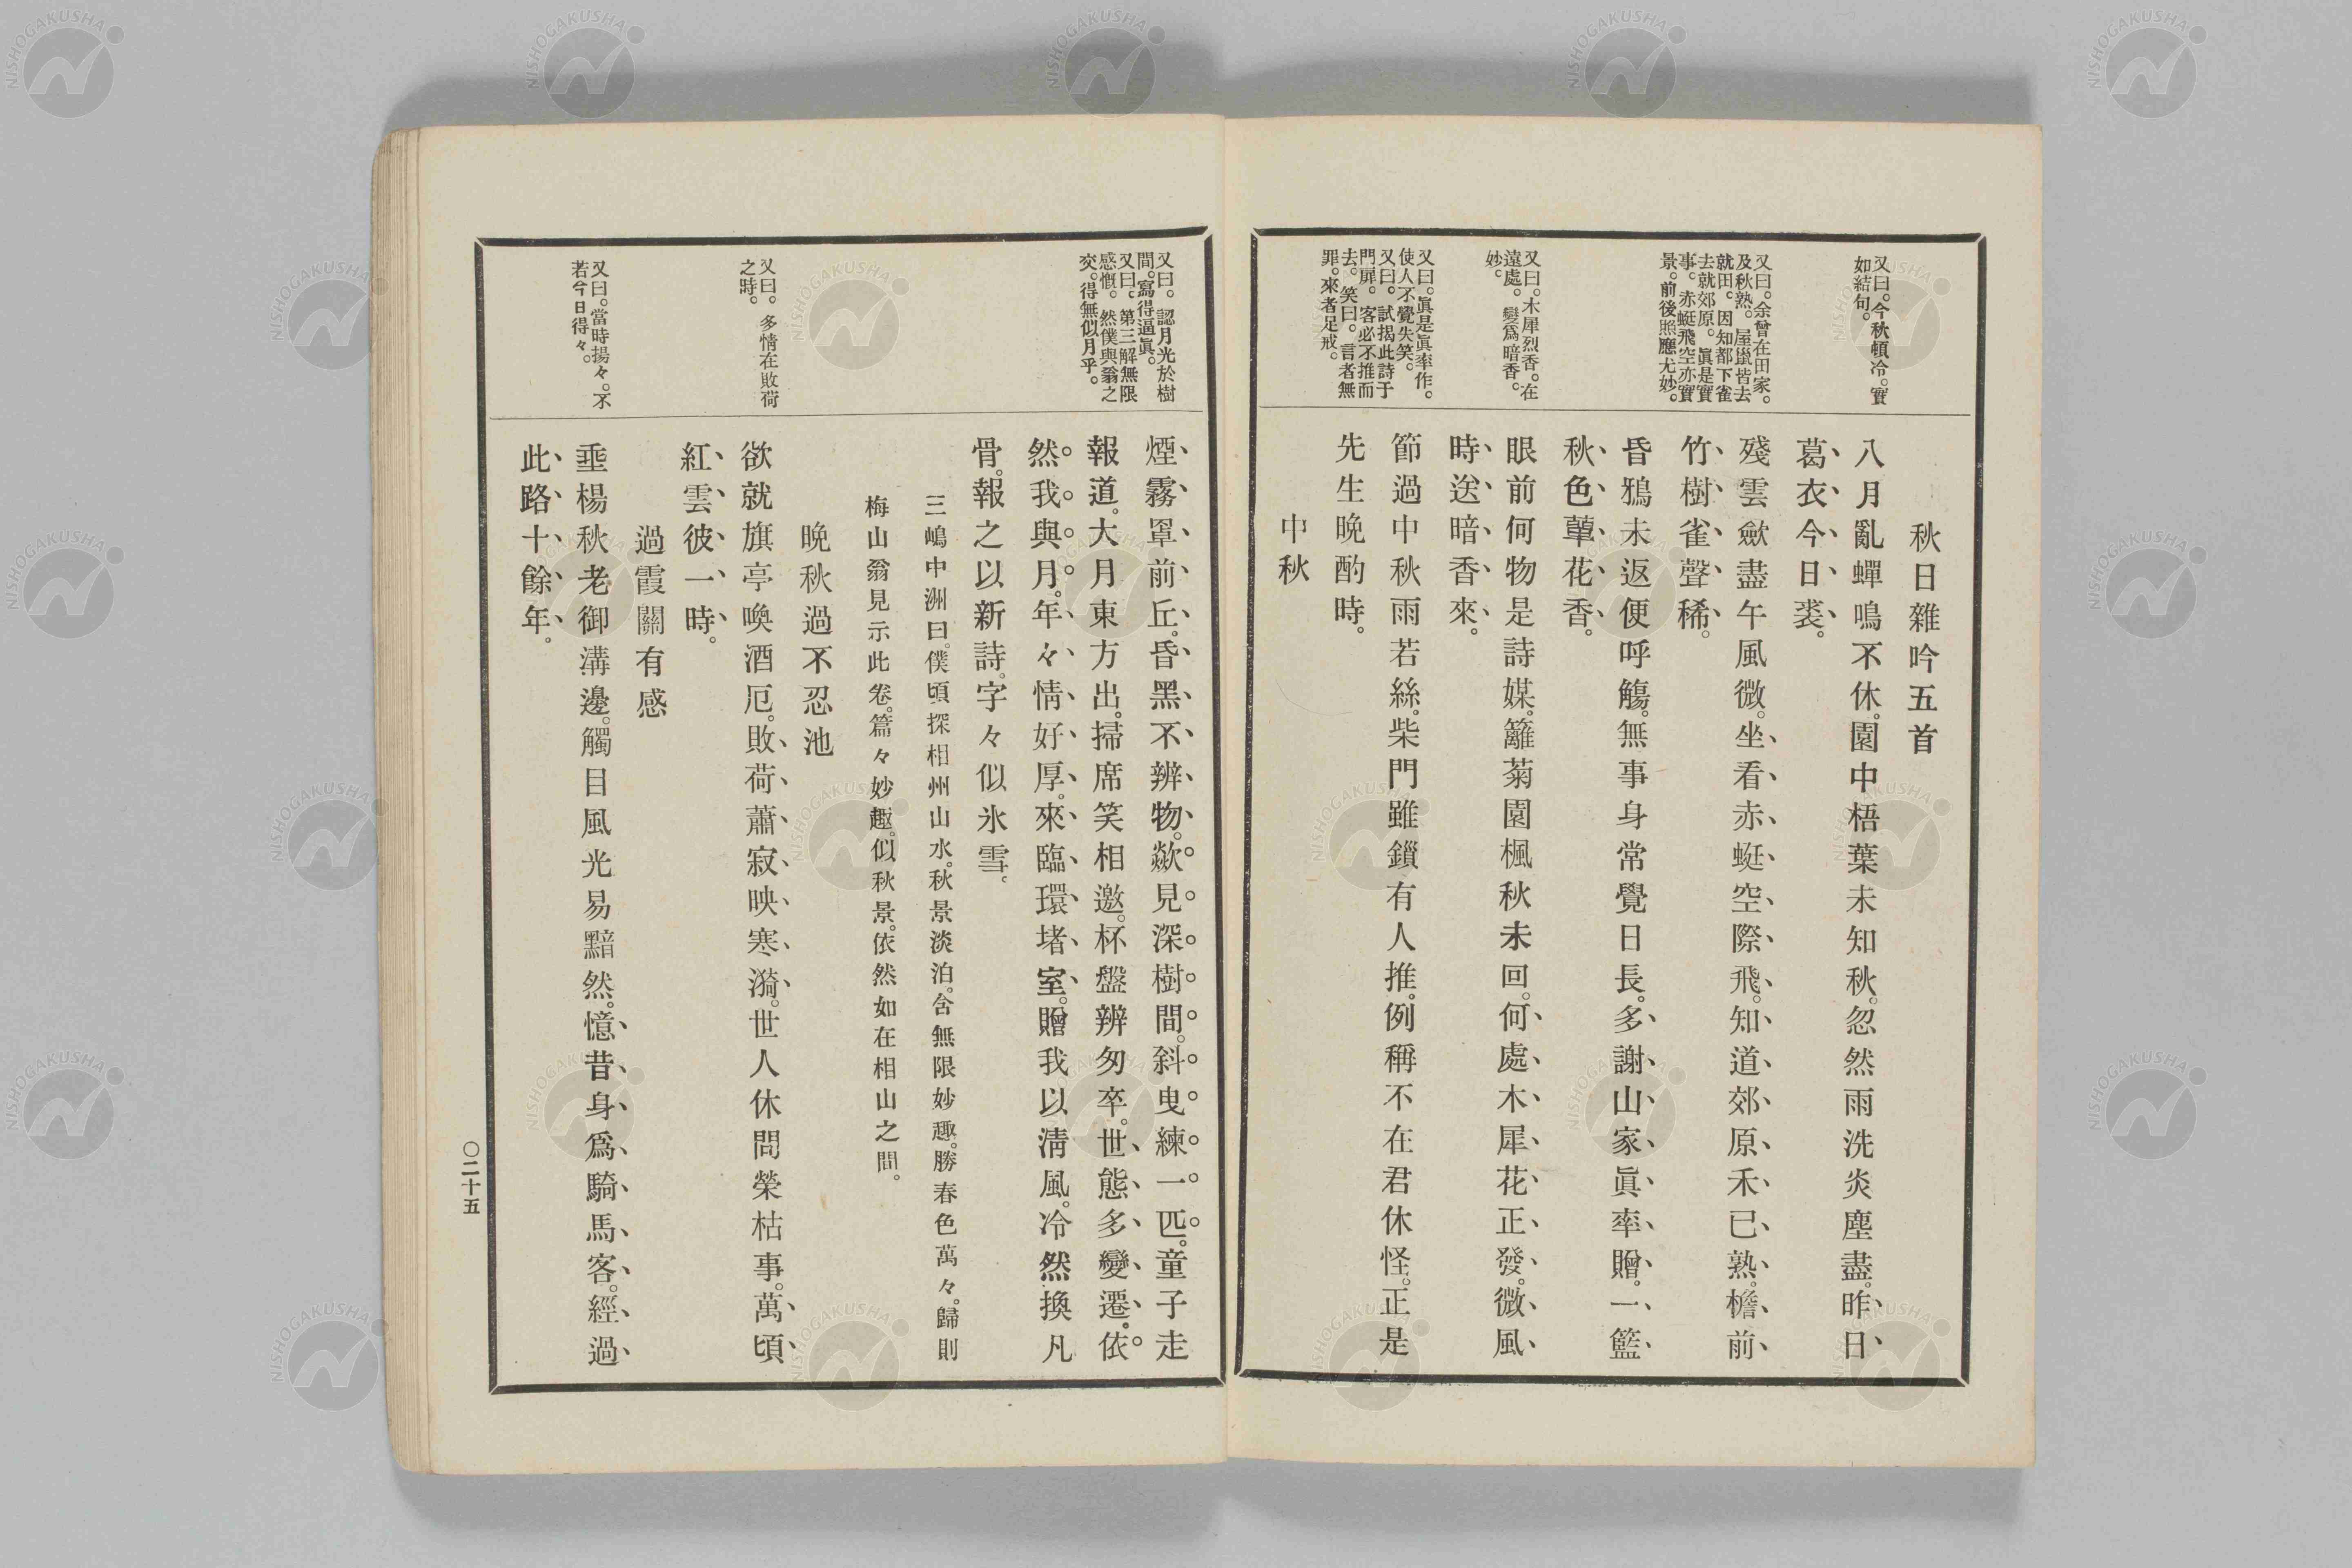 秋日雜吟五首
八月亂蟬鳴不休。園中梧葉未知秋。忽然雨洗炎塵盡。昨日
葛衣今日裘。
殘雲歛盡午風微。坐看赤蜓空際飛。知道郊原禾已熟。檐前
竹樹雀聲稀。
昏鴉未返便呼觴。無事身常覺日長。多謝山家眞率贈。一籃
秋色蕈花香。
眼前何物是詩媒。籬菊園楓秋未回。何處木犀花正發。微風
時送暗香來。
節過中秋雨若絲。柴門雖鎖有人推。例稱不在君休怪。正是
先生晩酌時。
中秋
又曰。今秋頓冷。實
如結句。
又曰。余曾在田家。
及秋熟。屋嵐皆去
就田。因知都下雀
去就郊原。眞是實
事。赤蜓飛空亦實
景。前後照應尤妙。
又曰。木犀烈香。在
遠處。變爲暗香。
妙。
又曰。眞是眞率作。
使人不覺失笑。
又曰。試揭此詩于
門扉。客必不推而
去。笑曰。言者無
罪。來者足戒。
煙霧罩前丘。昏黑不辨物。歘見深樹間。斜曳練一匹。童子走
報道。大月東方出。掃席笑相邀。杯盤辨匆卒。世態多變遷。依
然。我與月。年々情好厚。來臨環堵室。贈我以淸風。冷然換凡
骨。報之以新詩。字々似氷雪。
三嶋中洲曰。僕頃探相州山水。秋景淡泊。含無限妙趣。勝春色萬々。歸則
梅山翁見示此卷。篇々妙趣。似秋景。依然如在相山之間。
晩秋過不忍池
欲就旗亭喚酒厄。敗荷蕭寂映寒漪。世人休問榮枯事。萬頃
紅雲彼一時。
過霞關有感
垂楊秋老御溝邊。觸目風光易黯然。憶昔身爲騎馬客。經過
此路十餘年。
又曰。認月光於樹
間。寫得逼眞。
又曰。第三解無限
感慨。然僕與翁之
交。得無似月乎。
又曰。多情在敗荷
之時。
又曰。當時揚々。不
若今日得々。
〇二十五
NISHOGAKUSHA